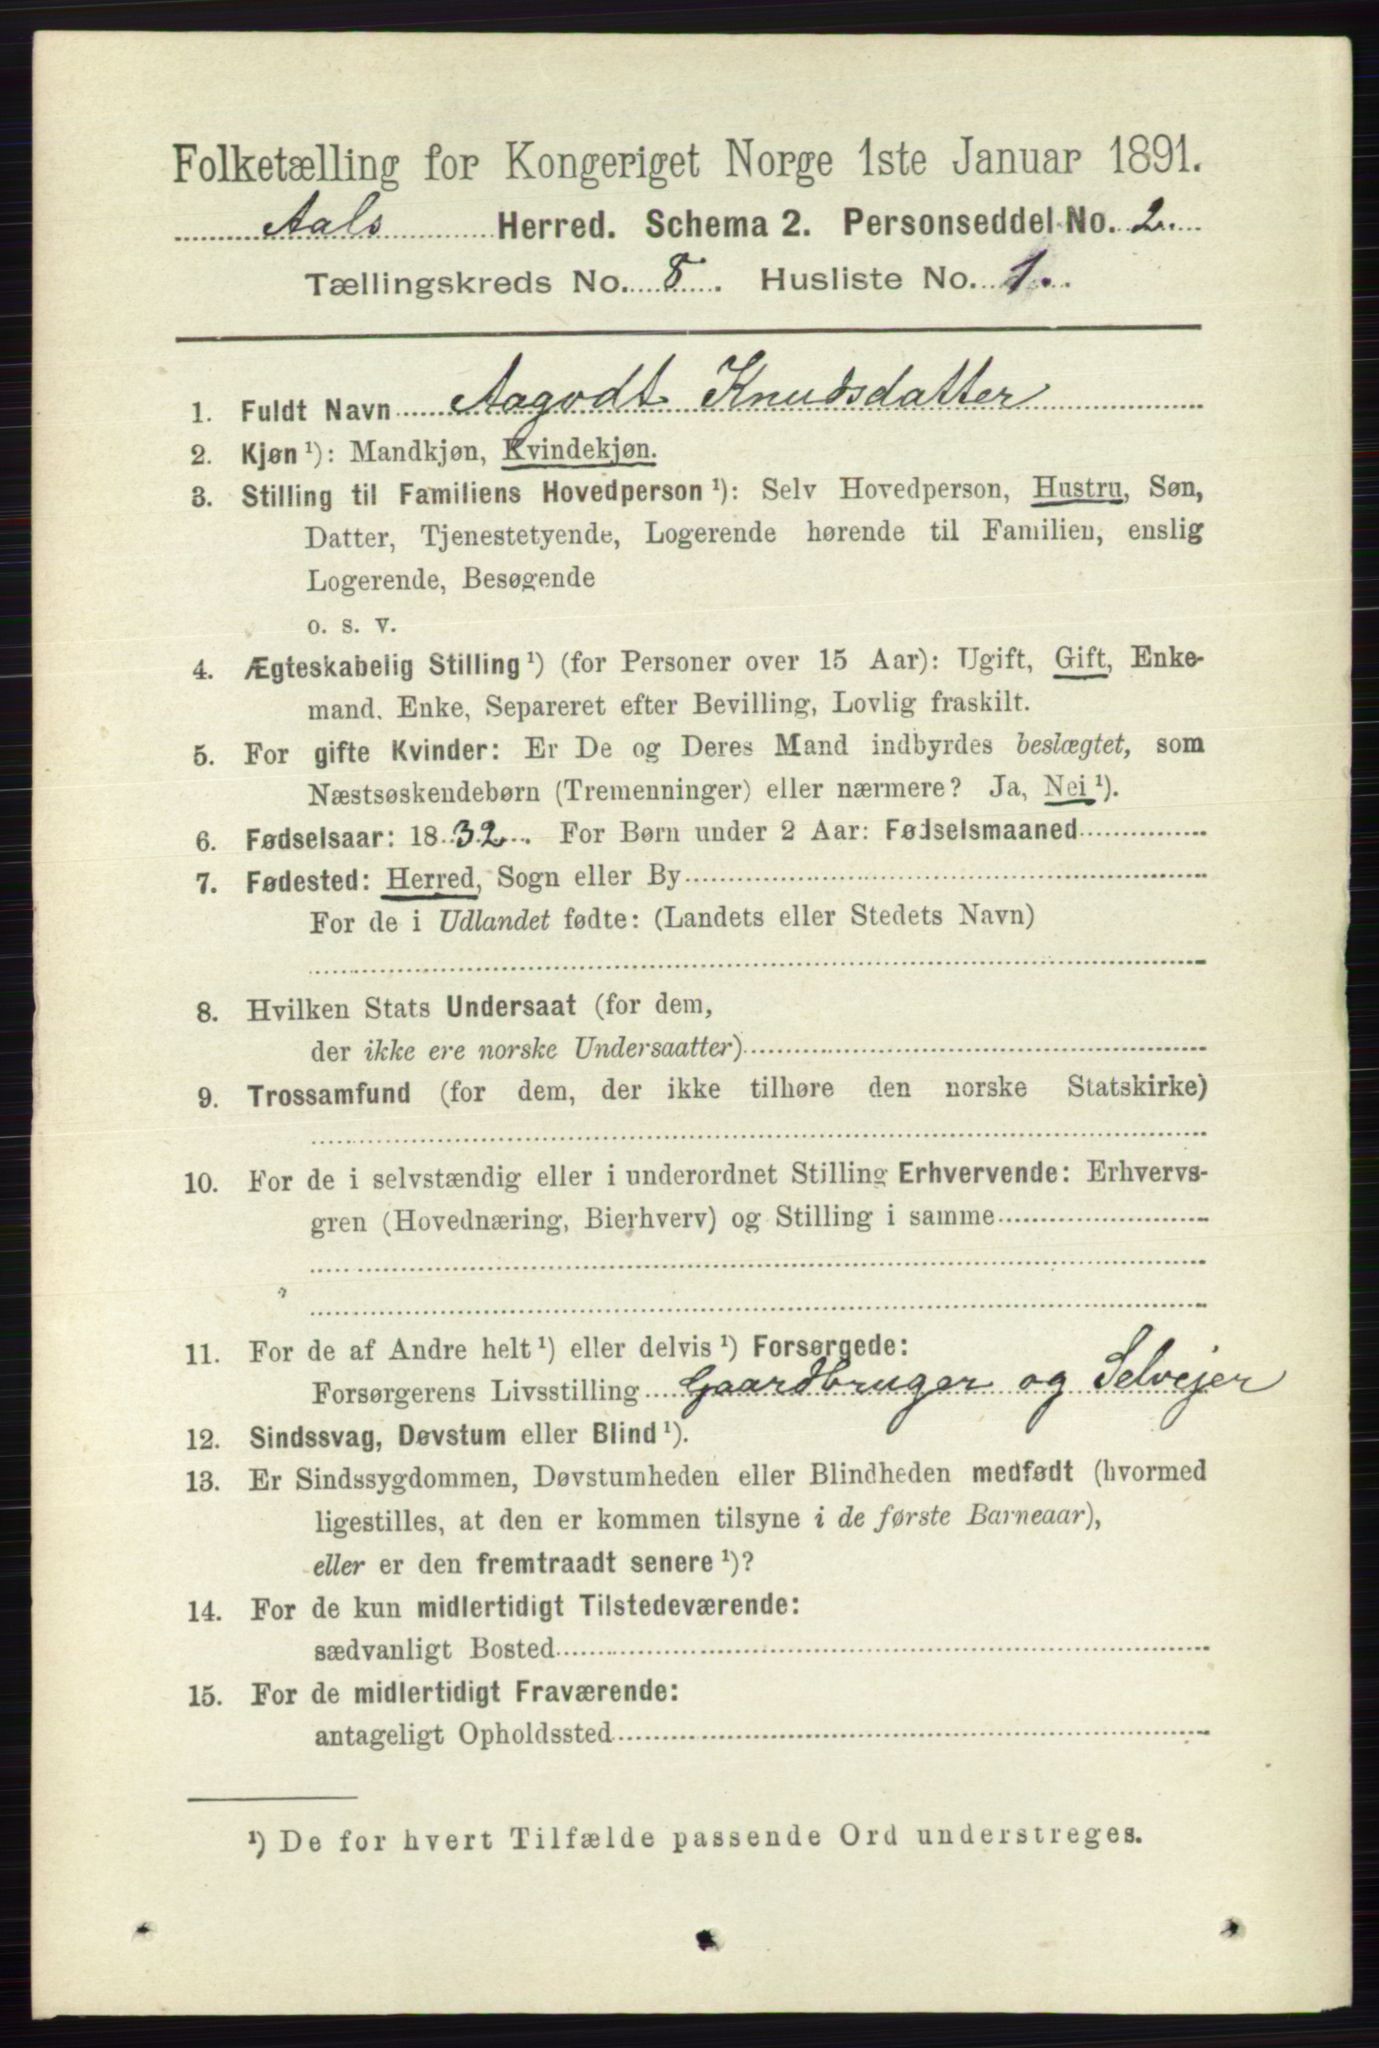 Folketælling for Kongeriget Norge 1ste Januar 1891.
Aals Herred. Schema 2. Personseddel No. 2.
Tællingskreds No. 8. Husliste No. 1.
1. Fuldt Navn Aagodt Knudsdatter
2. Kjøn ¹): Mandkjøn, Kvindekjøn.
3. Stilling til Familiens Hovedperson ¹): Selv Hovedperson, Hustru, Søn,
Datter, Tjenestetyende, Logerende hørende til Familien, enslig
Logerende, Besøgende
o. s. v.
4. Ægteskabelig Stilling ¹) (for Personer over 15 Aar): Ugift, Gift, Enke-
mand. Enke, Separeret efter Bevilling, Lovlig fraskilt.
5. For gifte Kvinder: Er De og Deres Mand indbyrdes beslægtet, som
Næstsøskendebørn (Tremenninger) eller nærmere? Ja, Nei ¹).
6. Fødselsaar: 1832. For Børn under 2 Aar: Fødselsmaaned
7. Fødested: Herred, Sogn eller By
For de i Udlandet fødte: (Landets eller Stedets Navn)
8. Hvilken Stats Undersaat (for dem,
der ikke ere norske Undersaatter)
9. Trossamfund (for dem, der ikke tilhøre den norske Statskirke)
10. For de i selvstændig eller i underordnet Stilling Erhvervende: Erhvervs-
gren (Hovednæring, Bierhverv) og Stilling i samme
11. For de af Andre helt ¹) eller delvis ¹) Forsørgede:
Forsørgerens Livsstilling Gaardbruger og Selvejer
12. Sindssvag, Døvstum eller Blind ¹).
13. Er Sindssygdommen, Døvstumheden eller Blindheden medfødt (hvormed
ligestilles, at den er kommen tilsyne i de første Barneaar),
eller er den fremtraadt senere ¹)?
14. For de kun midlertidigt Tilstedeværende:
sædvanligt Bosted
15. For de midlertidigt Fraværende:
antageligt Opholdssted
¹) De for hvert Tilfælde passende Ord understreges.